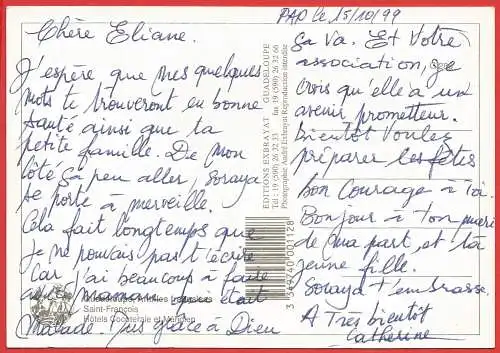 PAP le 15/10/99
Chère Eliane.
J'espère que mes quelques
mots te trouveront en bonne
santé ainsi que ta
petite famille. De mon
côté ça peu aller, Soraya
se porte à merveille.
Cela fait longtemps que
je ne pouvais pas t'écrire
Car j'ai beaucoup à faire
avec Maman, qui était
Malade. Mais grâce à Dieu
Saint-François
Hôtels Cocoteraie et Méridien
EDITIONS EXBRAYAT GUADELOUPE
Tél : 19 (590) 26 32 33 fax 19 (590) 26 32 66
Photographie André Exbrayat Reproduction interdite
3 349740 001128
ça va. Et Votre
association, je
Crois qu'elle a un
avenir prometteur.
Bientôt Voulez
préparer les fêtes
bon Courage à toi.
Bonjour à ton mari
de ma part, et ta
jeune fille.
Soraya t'embrasse.
A Très bientôt
Catherine